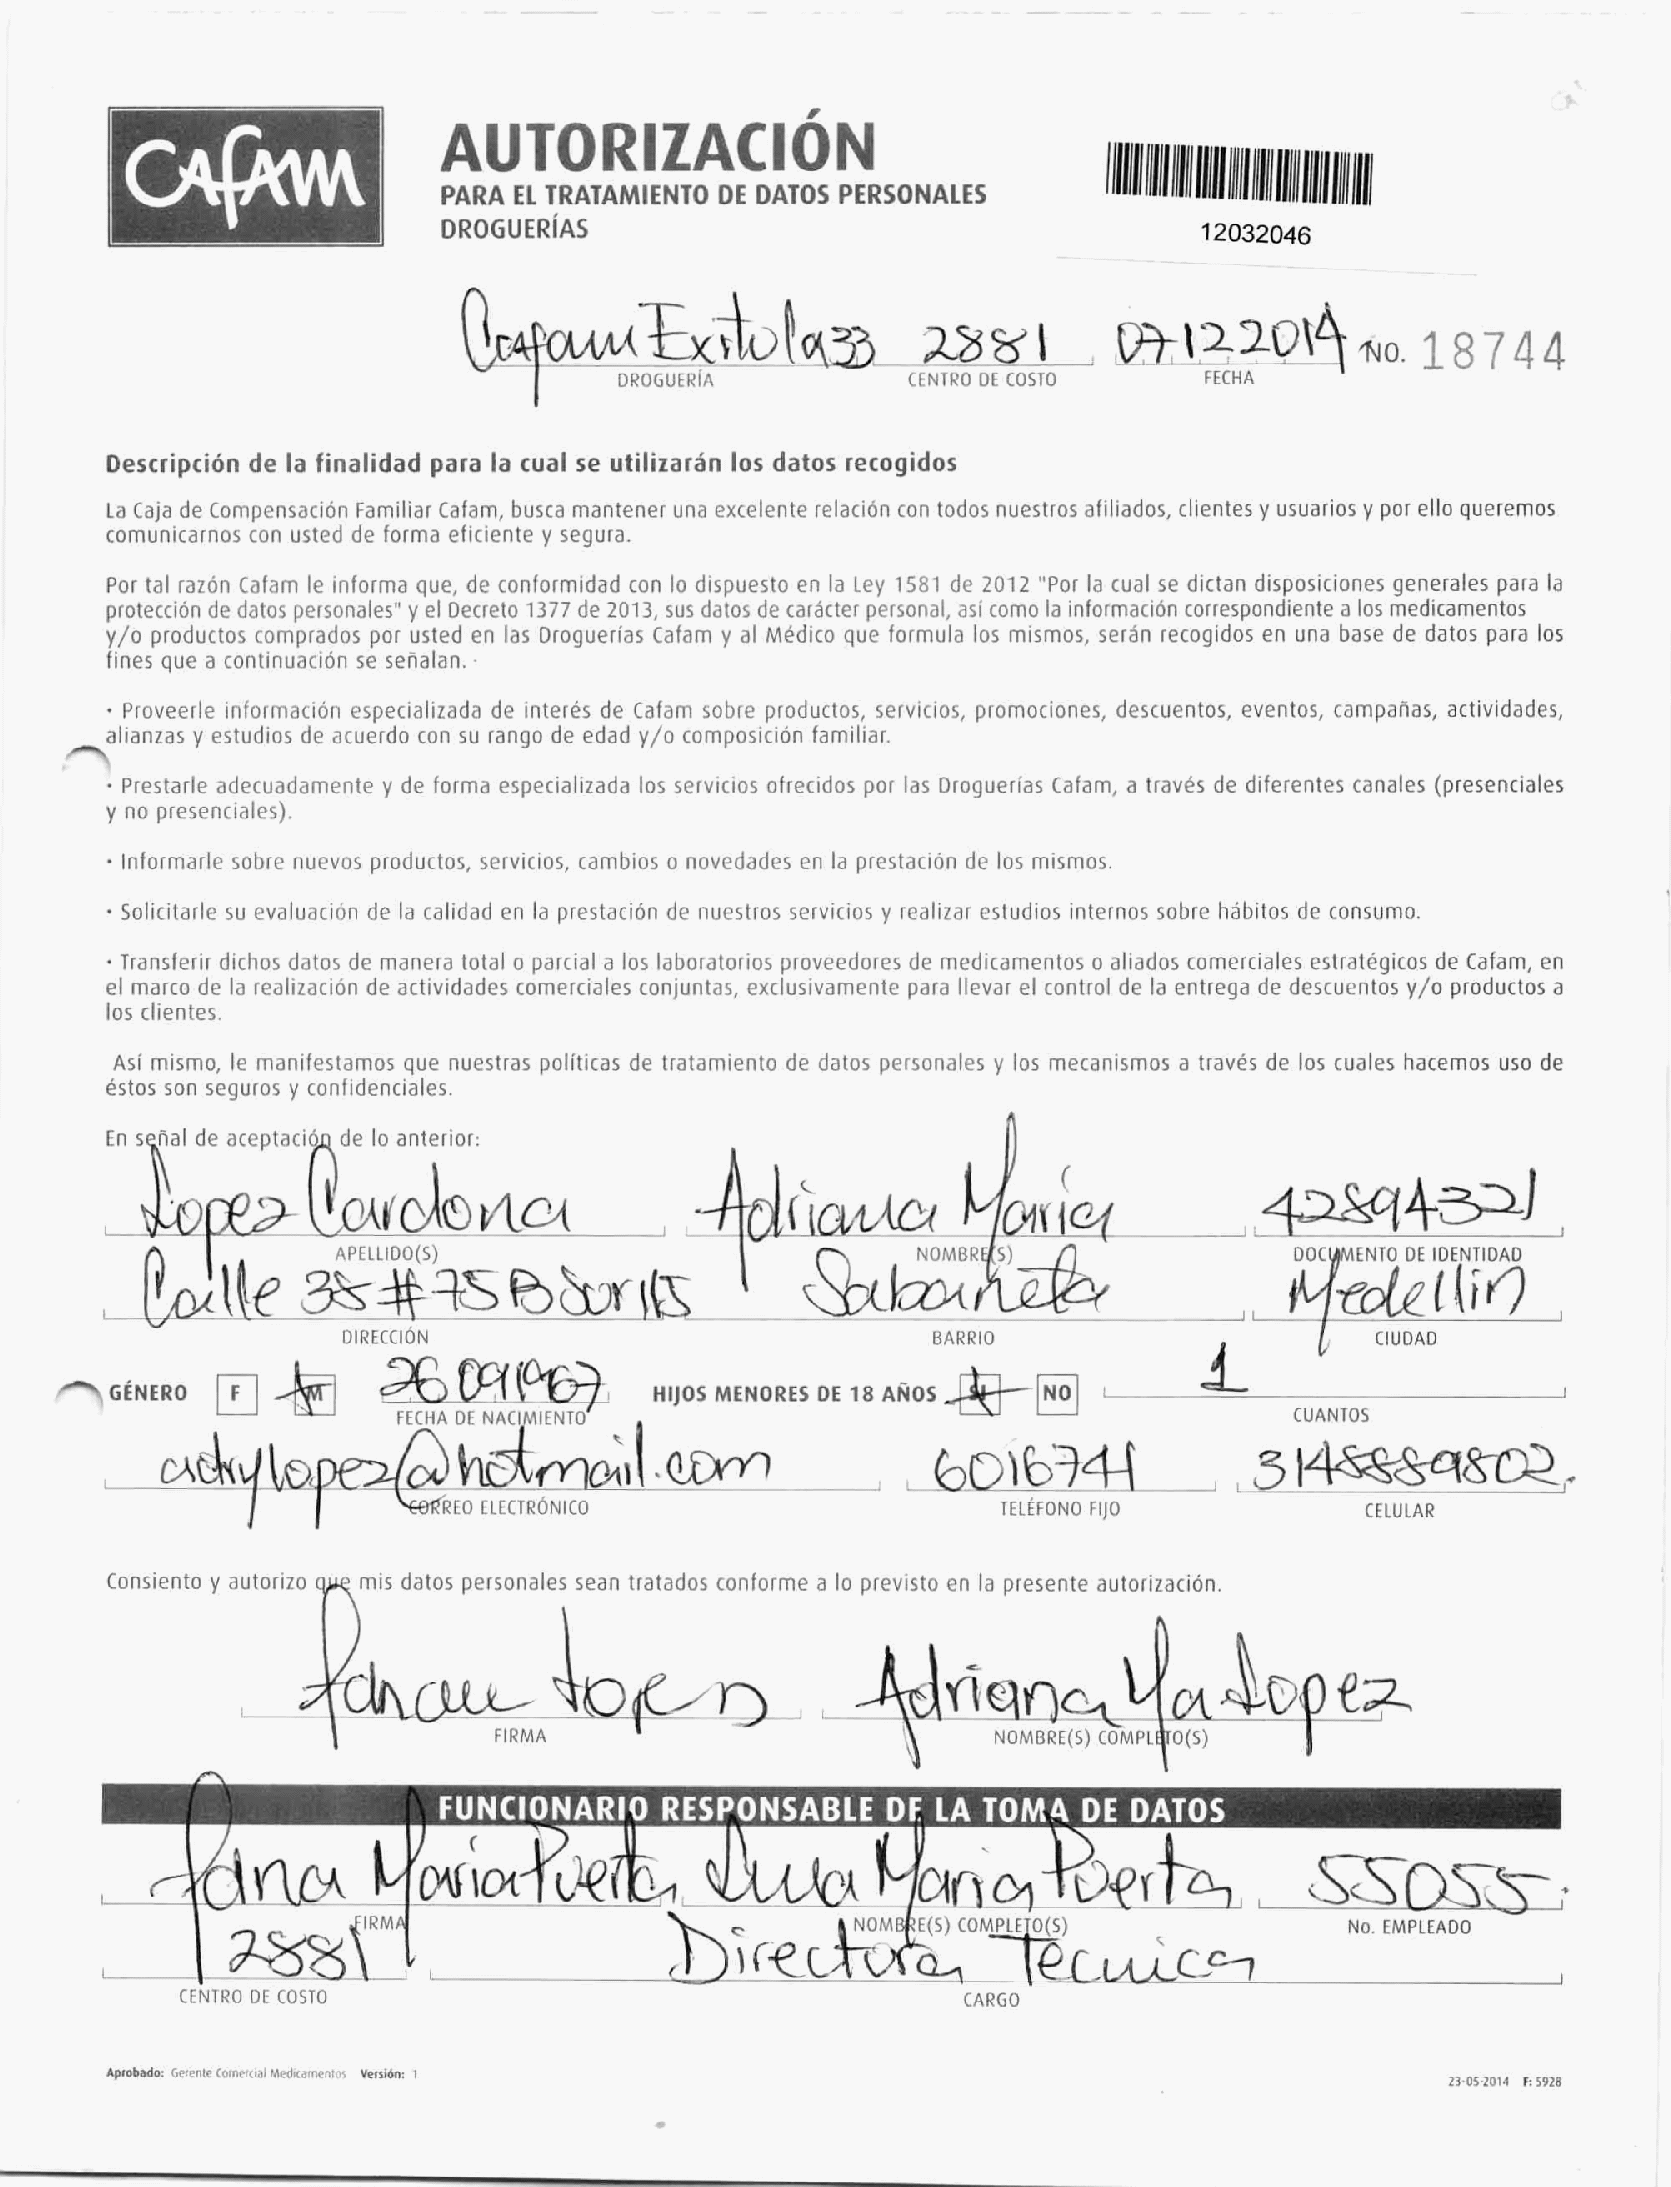 Cafam
AUTORIZACIÓN
PARA EL TRATAMIENTO DE DATOS PERSONALES
DROGUERÍAS
12032046
Cafam Exito la 33 2881 07122014 No. 18744
DROGUERÍA CENTRO DE COSTO FECHA
Descripción de la finalidad para la cual se utilizarán los datos recogidos
La Caja de Compensación Familiar Cafam, busca mantener una excelente relación con todos nuestros afiliados, clientes y usuarios y por ello queremos
comunicarnos con usted de forma eficiente y segura.
Por tal razón Cafam le informa que, de conformidad con lo dispuesto en la Ley 1581 de 2012 "Por la cual se dictan disposiciones generales para la
protección de datos personales" y el Decreto 1377 de 2013, sus datos de carácter personal, así como la información correspondiente a los medicamentos
y/o productos comprados por usted en las Droguerías Cafam y al Médico que formula los mismos, serán recogidos en una base de datos para los
fines que a continuación se señalan.
· Proveerle información especializada de interés de Cafam sobre productos, servicios, promociones, descuentos, eventos, campañas, actividades,
alianzas y estudios de acuerdo con su rango de edad y/o composición familiar.
· Prestarle adecuadamente y de forma especializada los servicios ofrecidos por las Droguerías Cafam, a través de diferentes canales (presenciales
y no presenciales).
· Informarle sobre nuevos productos, servicios, cambios o novedades en la prestación de los mismos.
· Solicitarle su evaluación de la calidad en la prestación de nuestros servicios y realizar estudios internos sobre hábitos de consumo.
· Transferir dichos datos de manera total o parcial a los laboratorios proveedores de medicamentos o aliados comerciales estratégicos de Cafam, en
el marco de la realización de actividades comerciales conjuntas, exclusivamente para llevar el control de la entrega de descuentos y/o productos a
los clientes.
Así mismo, le manifestamos que nuestras políticas de tratamiento de datos personales y los mecanismos a través de los cuales hacemos uso de
éstos son seguros y confidenciales.
En señal de aceptación de lo anterior:
Lopez Cardona Adriana Maria 42894321
APELLIDO(S) NOMBRE(S) DOCUMENTO DE IDENTIDAD
Calle 35 # 75 B Sur Sabaneta Medellin
DIRECCIÓN BARRIO CIUDAD
GÉNERO F M 26091967 HIJOS MENORES DE 18 AÑOS SI NO 1
FECHA DE NACIMIENTO CUANTOS
adrylopez@hotmail.com 6016741 3148889802
CORREO ELECTRÓNICO TELÉFONO FIJO CELULAR
Consiento y autorizo que mis datos personales sean tratados conforme a lo previsto en la presente autorización.
Adriana Ma Lopez
FIRMA NOMBRE(S) COMPLETO(S)
FUNCIONARIO RESPONSABLE DE LA TOMA DE DATOS
Maria Puerta Maria Puerta 55055
FIRMA NOMBRE(S) COMPLETO(S) No. EMPLEADO
2881 Directora Tecnica
CENTRO DE COSTO CARGO
Aprobado: Gerente Comercial Medicamentos Versión: 1
23-05-2014 F: 5928